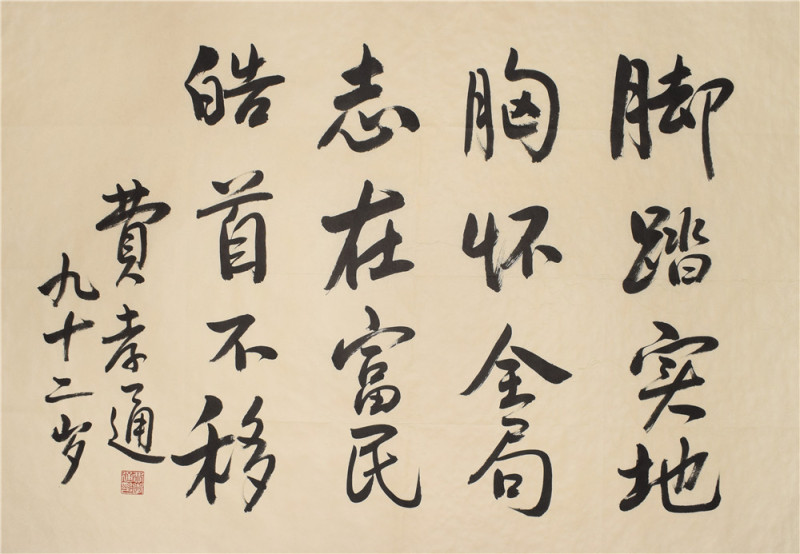 脚踏实地
胸怀全局
志在富民
皓首不移
費孝通
九十二岁